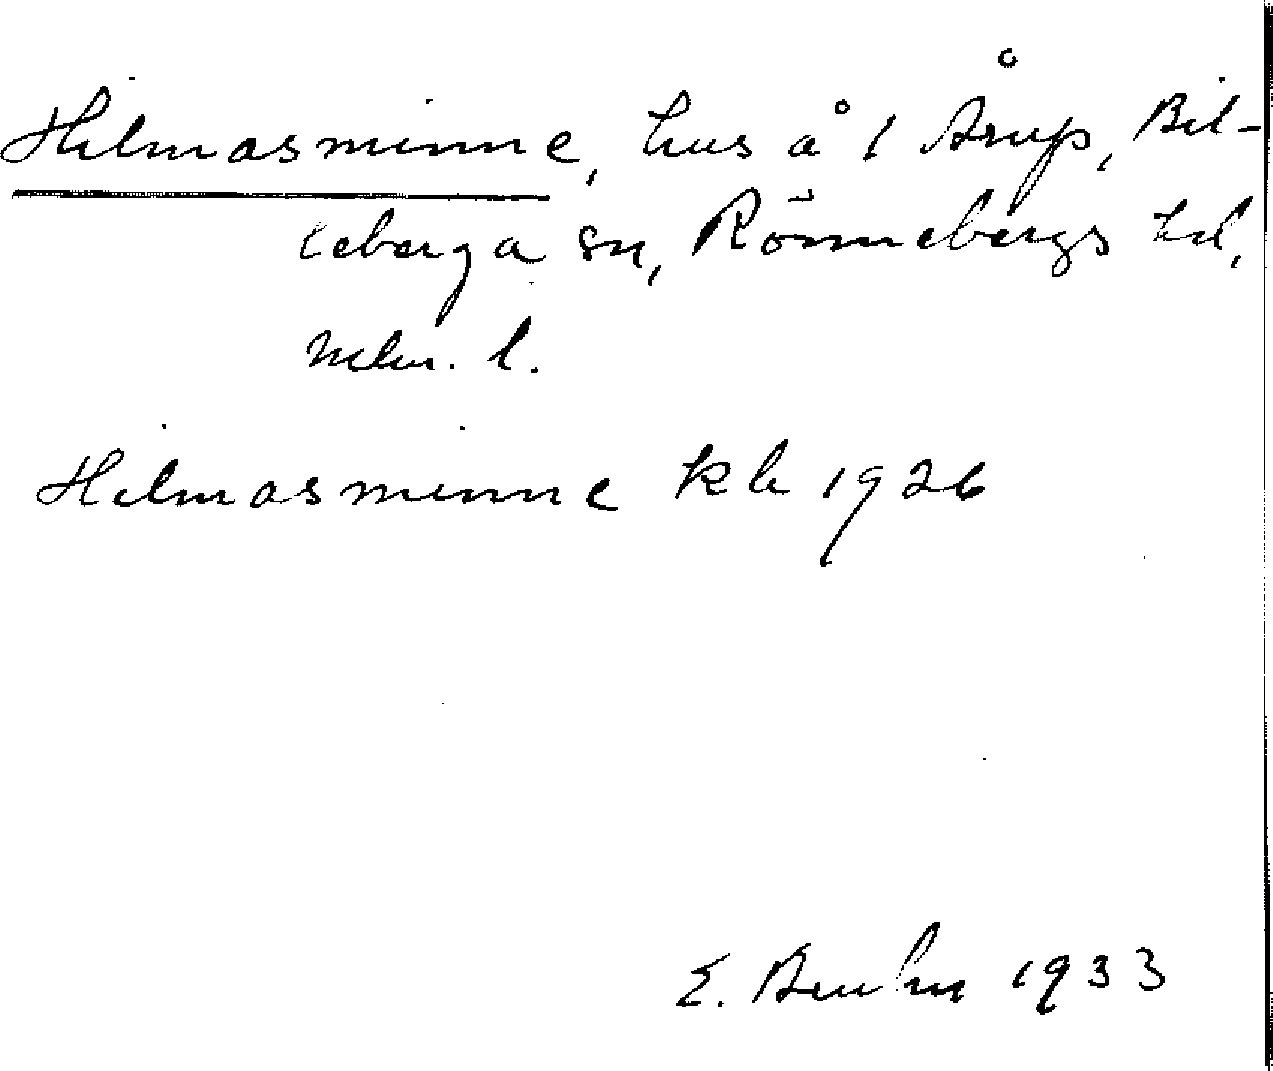 Hilmasminne, hus å 1 Årup, Bil-
leberga sn, Rönnebergs hd,
Mlm. l.
Hilmasminne kb 1926
E. Bruhn 1933